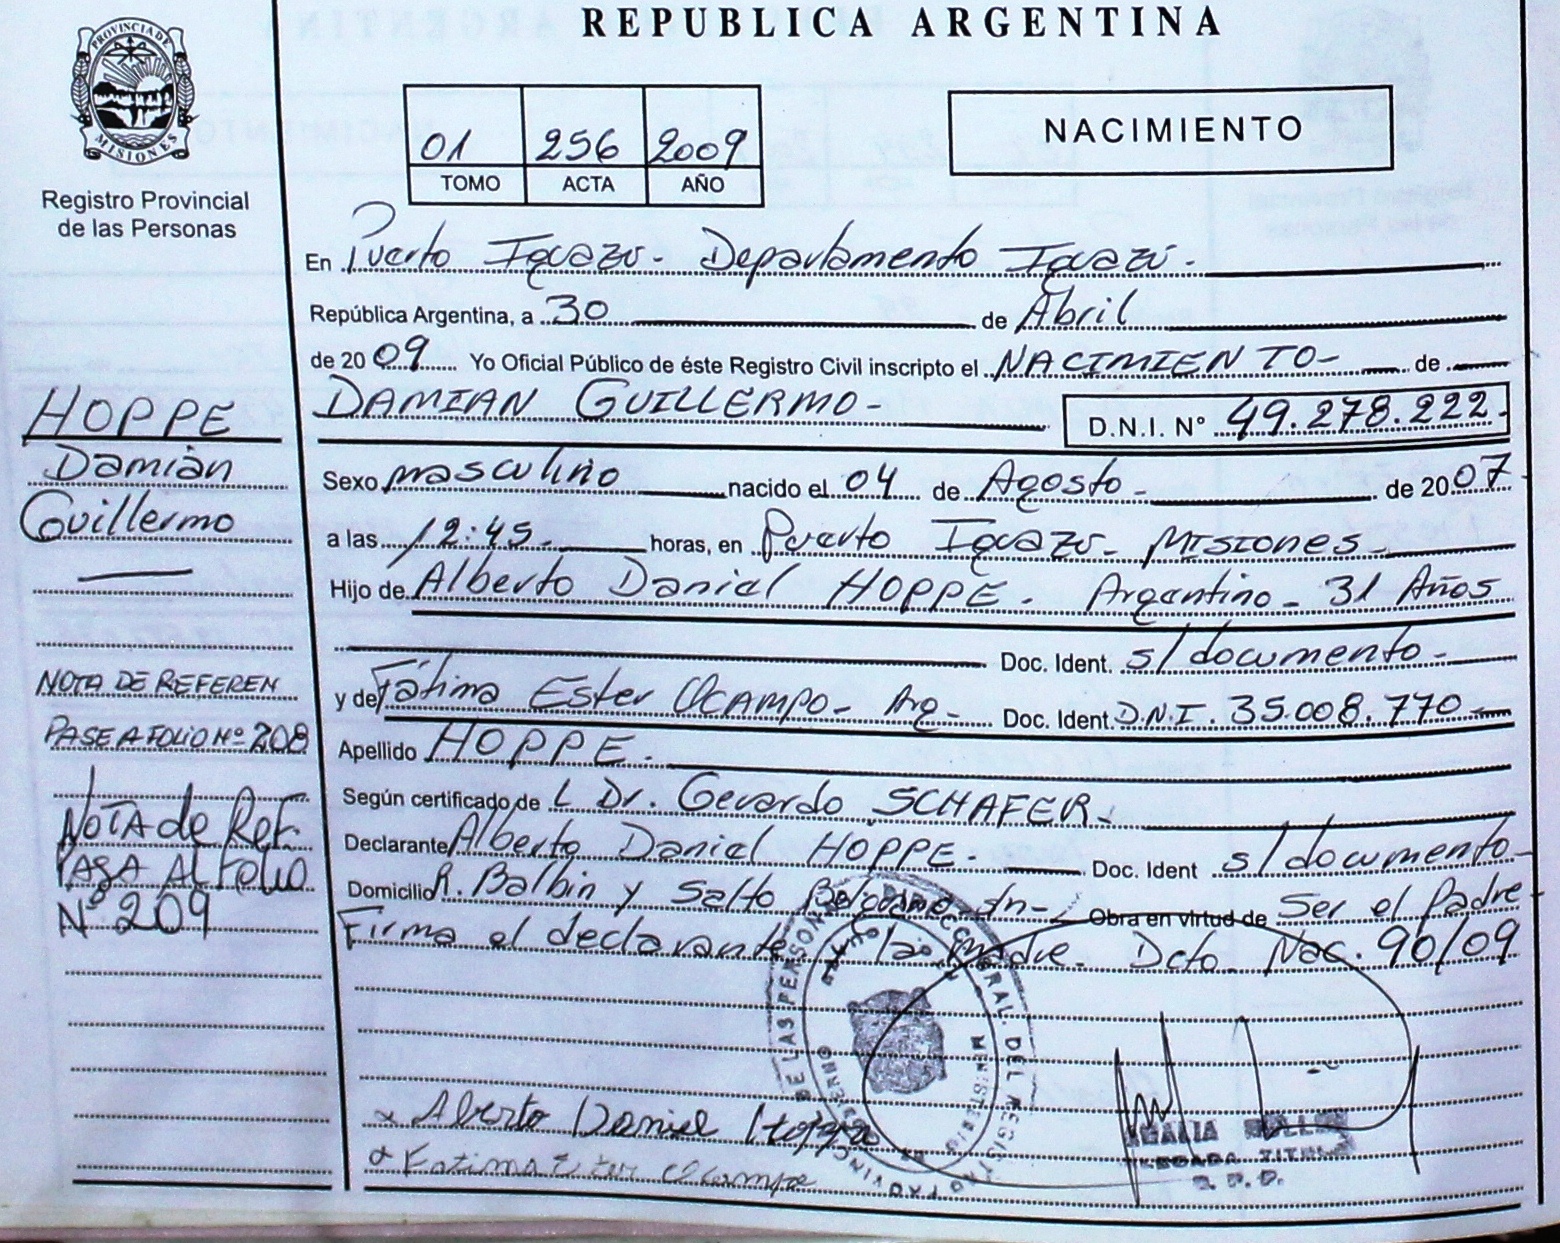 REPUBLICA ARGENTINA
PROVINCIA DE MISIONES
Registro Provincial
de las Personas
01 256 2009
TOMO ACTA AÑO
NACIMIENTO
En Puerto Iguazú - Departamento Iguazú -
República Argentina, a 30 de Abril
de 2009 Yo Oficial Público de éste Registro Civil inscripto el NACIMIENTO- de
DAMIAN GUILLERMO- D.N.I. N° 49.278.222-
Sexo masculino nacido el 04 de Agosto - de 2007
a las 12:45- horas, en Puerto Iguazú - Misiones -
Hijo de Alberto Daniel HOPPE - Argentino - 31 Años
Doc. Ident. s/documento -
y de Fátima Ester OCAMPO - Arg - Doc. Ident. D.N.I. 35.008.770-
Apellido HOPPE -
Según certificado de L Dr. Gerardo SCHAFER -
Declarante Alberto Daniel HOPPE - Doc. Ident s/documento -
Domicilio R. Balbin y Salto Belgrano - Obra en virtud de Ser el Padre -
Firma el declarante y la madre - Dcto Nac. 90/09
HOPPE
Damián
Guillermo
NOTA DE REFEREN
PASE A FOLIO Nº 208
NOTA de REF.
PASA AL FOLIO
Nº 209
x Alberto Daniel Hoppe
x Fatima Ester Ocampo
TITULAR